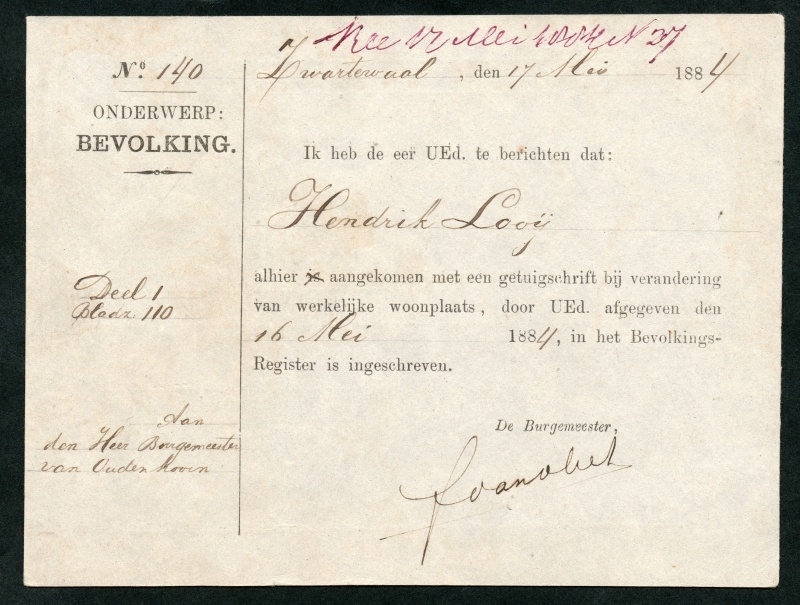 Rec 17 Mei 1884 N 27
No. 140
Zwartewaal, den 17 Mei 1884
ONDERWERP:
BEVOLKING.
Ik heb de eer UEd. te berichten dat:
Hendrik Looij
alhier is aangekomen met een getuigschrift bij verandering
van werkelijke woonplaats, door UEd. afgegeven den
16 Mei 1884, in het Bevolkings-
Register is ingeschreven.
Deel 1
Bladz. 110
Aan
den Heer Burgemeester
van Oudenhoorn
De Burgemeester,